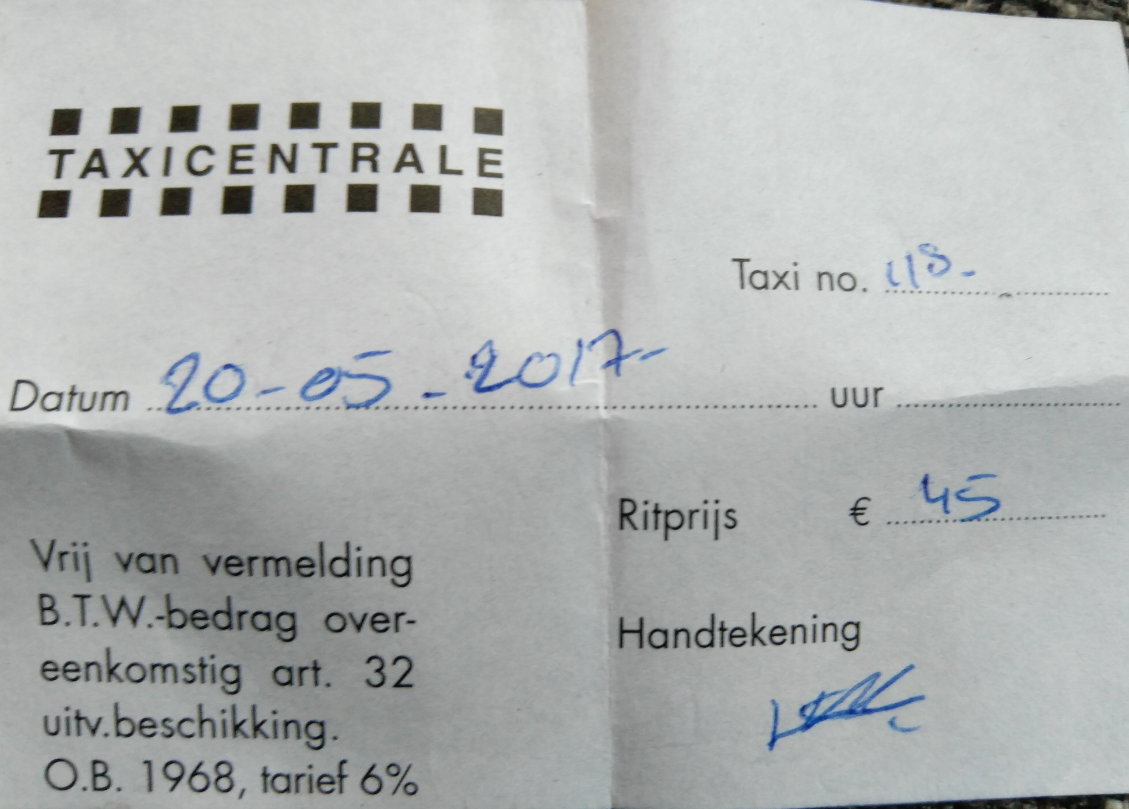 TAXICENTRALE
Taxi no. 118-
Datum 20-05-2017- uur
Ritprijs € 45
Vrij van vermelding
B.T.W.-bedrag over-
eenkomstig art. 32
uitv.beschikking.
O.B. 1968, tarief 6%
Handtekening